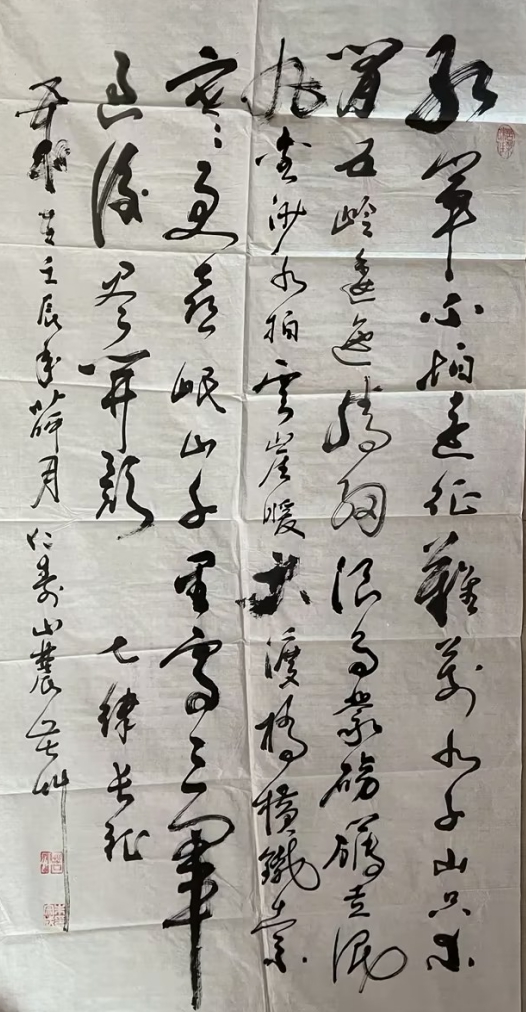 红军不怕远征难万水千山只等
闲五岭逶迤腾细浪乌蒙磅礴走泥
丸金沙水拍云崖暖大渡桥横铁索
寒更喜岷山千里雪三军
过后尽开颜 七律长征
壬辰年荷月仁寿山農